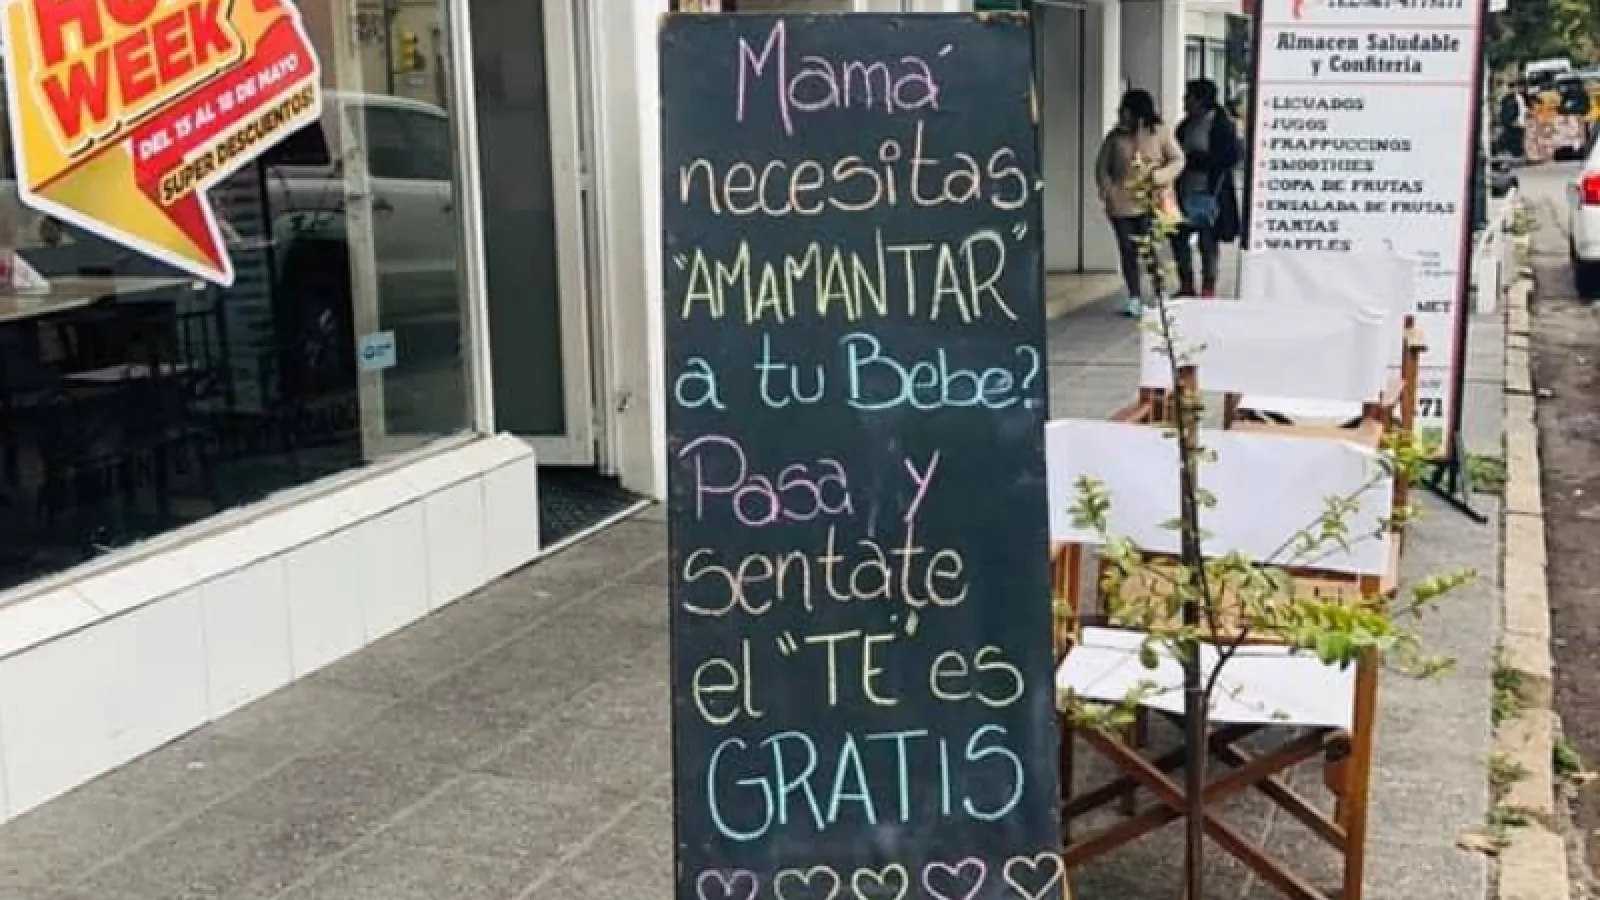 Mamá
necesitas
"AMAMANTAR"
a tu Bebe?
Pasa y
sentate
el "TÉ" es
GRATIS
HOT
WEEK
DEL 15 AL 18 DE MAYO
SUPER DESCUENTOS!
Almacen Saludable
y Confiteria
• LICUADOS
• JUGOS
• FRAPPUCCINOS
• SMOOTHIES
• COPA DE FRUTAS
• ENSALADA DE FRUTAS
• TARTAS
• WAFFLES
MET
71